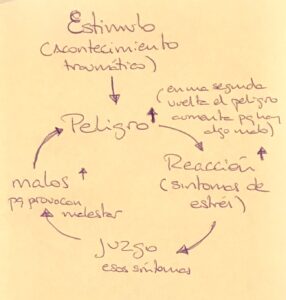 Estimulo
(acontecimiento
traumático)
Peligro
(en una segunda
vuelta el peligro
aumenta pq hay
algo malo)
Reacción
(síntomas de
estrés)
Juzgo
esos síntomas
malos
pq provocan
malestar